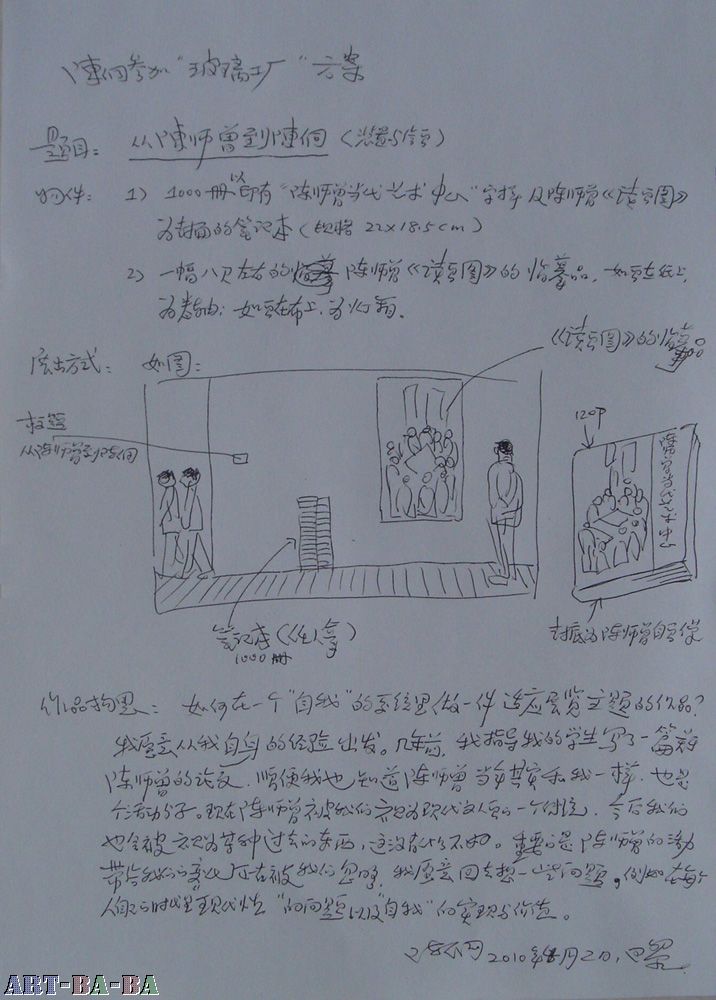 陳侗参加“玻璃厂”方案
题目: 从陳师曾到陳侗 (装置与绘画)
物件: 1) 1000册以印有“陈师曾当代艺术中心”字样及陈师曾《读画图》
为封面的笔记本 (规格 22×18.5cm)
2) 一幅八尺左右的陈师曾《读画图》的临摹品, 如画在纸上,
为卷轴; 如画在布上, 为
展出方式: 如图:
《读画图》的临摹品
标题
从陈师曾到陈侗
120P
陈师曾当代艺术中心
笔记本 (任人拿)
1000册
封底为陈师曾自画像
作品构思: 如何在一个“自我”的系统里做一件适应展览主题的作品?
我愿意从我自身的经验出发。几年前, 我指导我的学生写了一篇
陈师曾的论文, 顺便我也知道陈师曾当年其实和我一样, 也是
个活动分子。现在陈师曾被我们视为现代文人画的一个传统, 今后我们
也会被视为某种过去的东西, 这没有什么不好。重要的是陈师曾的活动
带给我们的意义正在被我们忽略, 我愿意回去想一些问题。例如在每个
人自己的时代里“现代性”的问题以及“自我”的实现与价值。
2010年 月2日,
ART-BA-BA